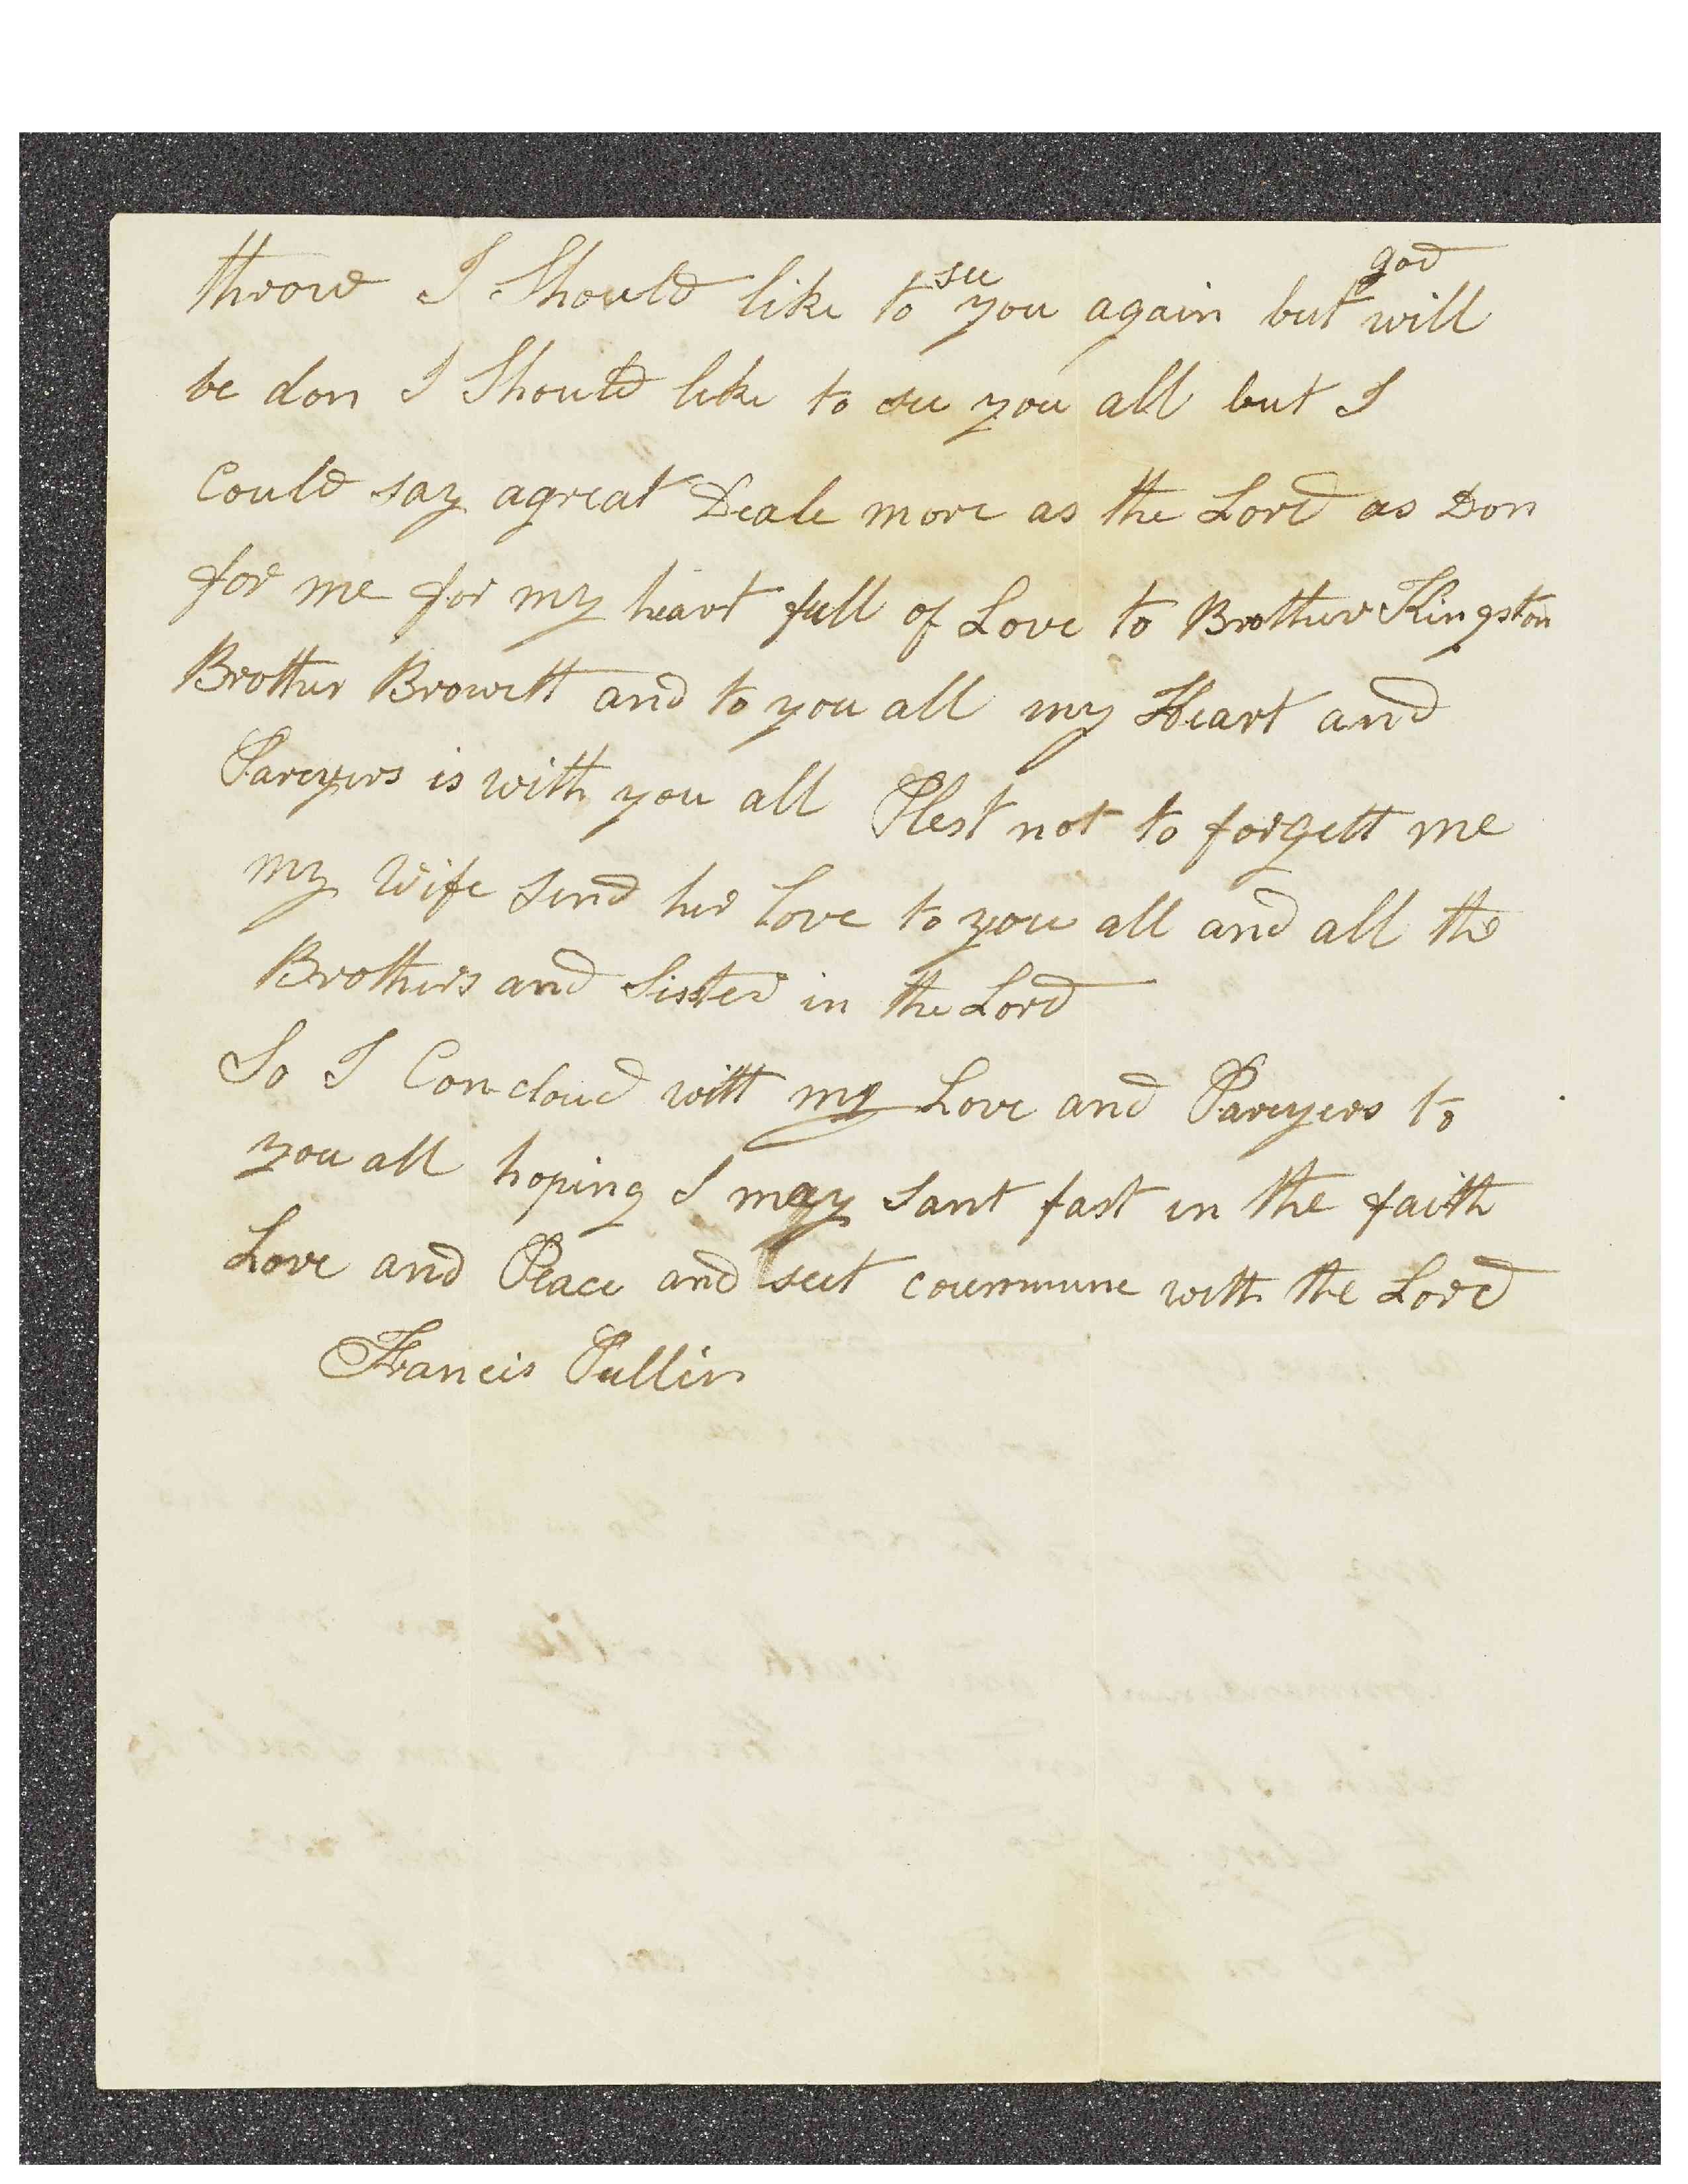 throve I Should like to see you again but god will
be don I Should like to see you all but I
Could say agreat Deale more as the Lord as Don
for me for my heart full of Love to Brother Kingston
Brother Browett and to you all my Heart and
Pareyers is with you all Plest not to forgett me
my Wife send her Love to you all and all the
Brothers and Sister in the Lord
So I Concloud with my Love and Pareyers to
you all hoping I may sant fast in the faith
Love and Peace and seet coummune with the Lord
Francis Pullin